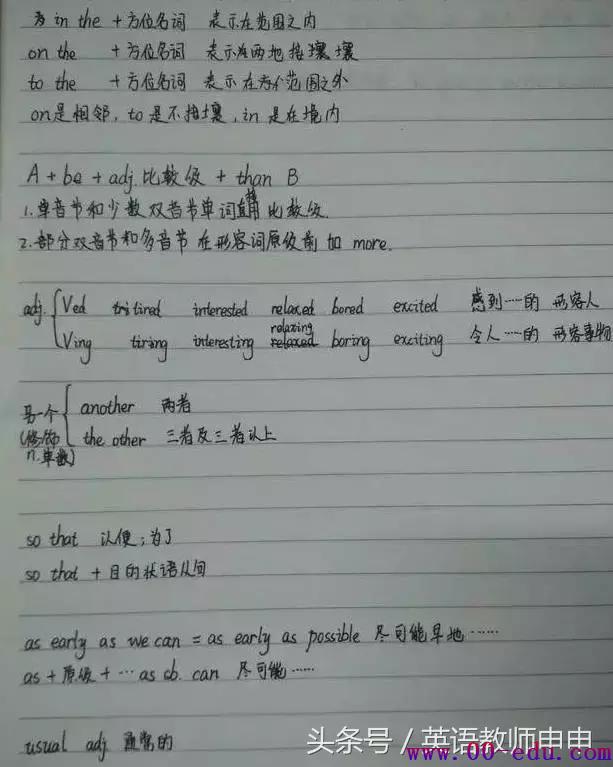 in the + 方位名词 表示在范围之内
on the + 方位名词 表示在两地接壤
to the + 方位名词 表示在范围之外
on是相邻, to 是不接壤, in 是在境内
A + be + adj. 比较级 + than B
1. 单音节和少数双音节单词直接用比较级.
2. 部分双音节和多音节 在形容词原级前 加 more.
adj. { Ved tired interested relaxed bored excited 感到……的 形容人
Ving tiring interesting relaxing boring exciting 令人……的 形容事物
另一个 { another 两者
(修饰n.单数) the other 三者及三者以上
so that 以便;为了
so that + 目的状语从句
as early as we can = as early as possible 尽可能早地……
as + 原级 + … as sb. can 尽可能……
usual adj 通常的
头条号 / 英语教师申申
www.00-edu.com